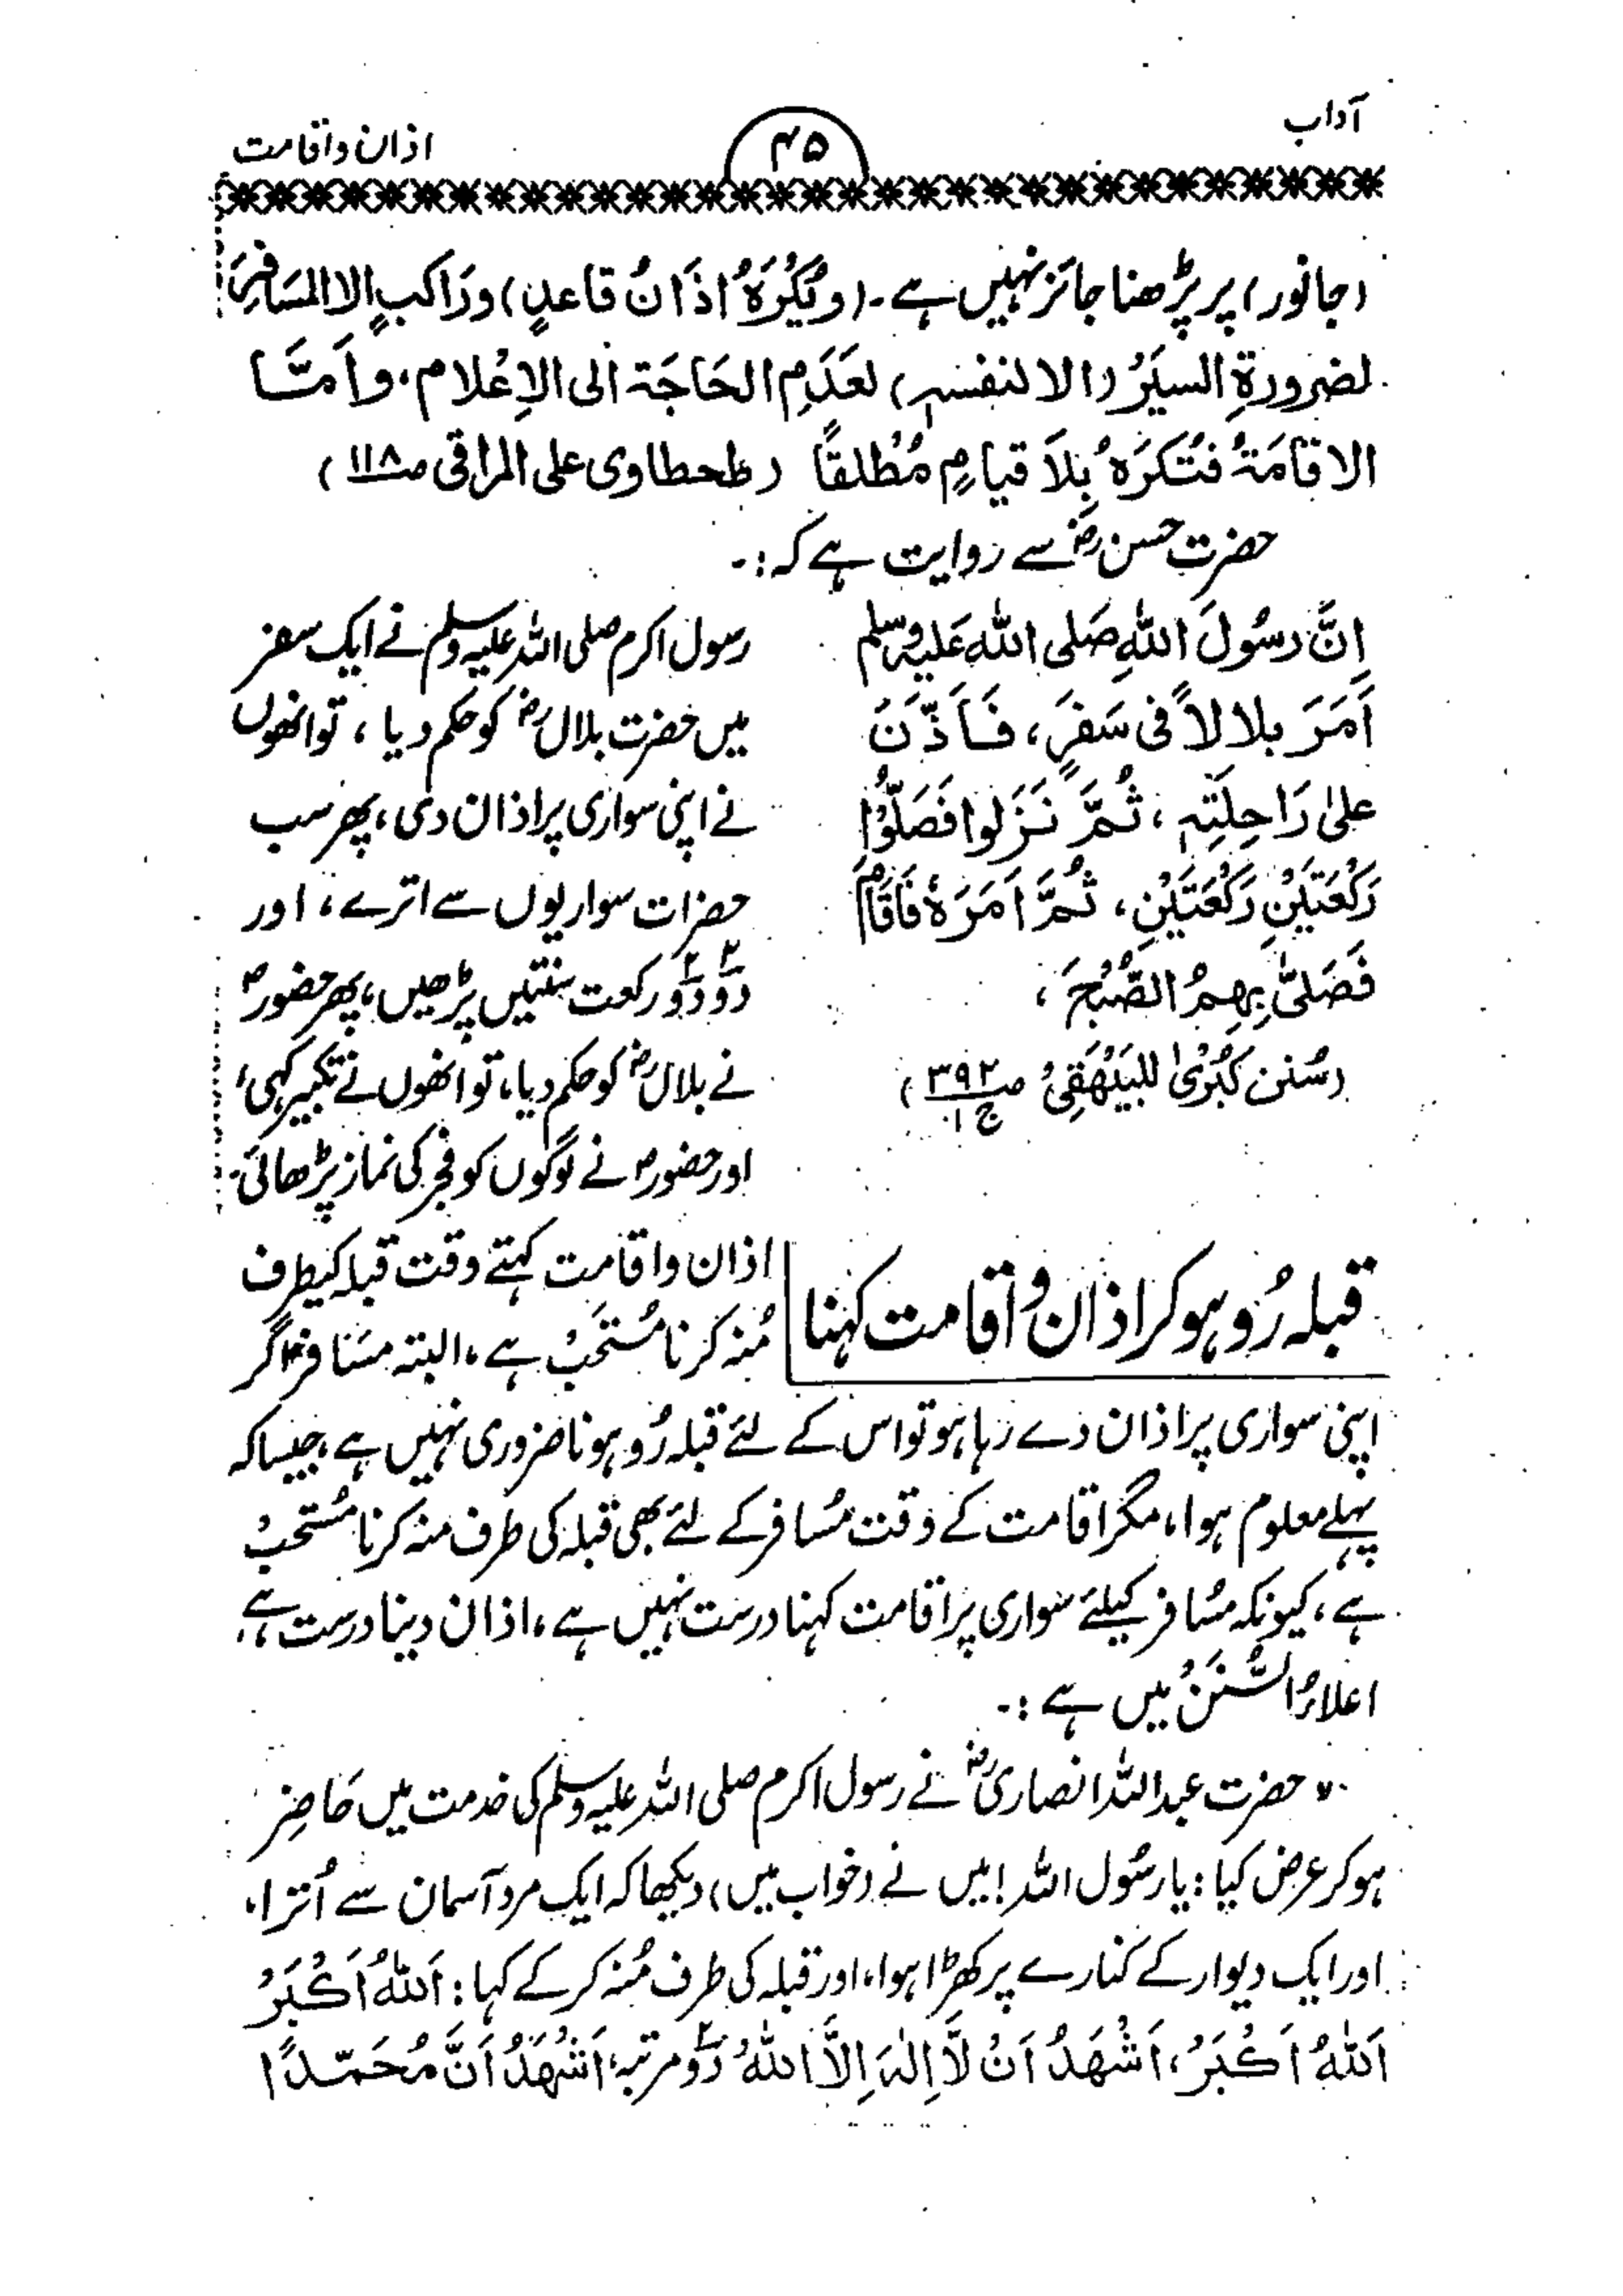 آداب
۴۵
اذان واقامت
(جانور) پر پڑھنا جائز نہیں ہے۔ (ویُکْرَہُ اذَانُ قاعدٍ) ورَاکبٍ الا المسَافِرَ
لضرورۃِ السیَرُ (الا لنفسہٖ) لعَدَمِ الحَاجَۃ الی الاِعْلام، واَمَّا
الاقامَۃُ فتُکرَہُ بِلاَ قیامٍ مُطلقاً (طحطاوی علی المراقی صـ۱۱۸)
حضرت حسنؓ سے روایت ہے کہ :۔
اِنَّ رسُولَ اللّٰہِ صَلی اللّٰہ عَلیہ وسلم
اَمَرَ بلالاً فی سَفَرٍ، فَاَذَّنَ
علیٰ رَاحِلَتِہٖ، ثُمَّ نَزَلوا فَصَلَّوْا
رَکْعَتَیْنِ رَکْعَتَیْنِ، ثُمَّ اَمَرَہٗ فَاَقَامَ
فَصَلیّٰ بِھِمُ الصُّبْحَ،
(سُنن کُبْرٰی للبَیْھَقِیُ صـ۳۹۲ ج۱)
رسول اکرم صلی اللّٰہ علیہ وسلم نے ایک سفر
میں حضرت بلالؓ کو حکم دیا، تو انھوں
نے اپنی سواری پر اذان دی، پھر سب
حضرات سواریوں سے اترے، اور
دو۲ دو۲ رکعت سنتیں پڑھیں، پھر حضورؐ
نے بلالؓ کو حکم دیا، تو انھوں نے تکبیر کہی،
اور حضورؐ نے لوگوں کو فجر کی نماز پڑھائی۔
قبلہ رُو ہوکر اذان و اقامت کہنا
اذان واقامت کہتے وقت قبلہ کیطرف
مُنہ کرنا مُستحَبْ ہے، البتہ مسَافر اگر
اپنی سواری پر اذان دے رہا ہو تو اس کے لئے قبلہ رُو ہونا ضروری نہیں ہے جیسا کہ
پہلے معلوم ہوا، مگر اقامت کے وقت مُسافر کے لئے بھی قبلہ کی طرف منہ کرنا مُستحبْ
ہے، کیونکہ مسُافر کیلئے سواری پر اقامت کہنا درست نہیں ہے، اذان دینا درست ہے،
اعلاءُ السُّنَنْ میں ہے :۔
"حضرت عبداللّٰہ انصاریؓ نے رسول اکرم صلی اللّٰہ علیہ وسلم کی خدمت میں حَاضِر
ہوکر عرض کیا : یا رسُول اللّٰہ ! میں نے (خواب میں) دیکھا کہ ایک مرد آسمان سے اُترا،
اور ایک دیوار کے کنارے پر کھڑا ہوا، اور قبلہ کی طرف مُنہ کرکے کہا : اَللّٰہُ اَکْبَرُ
اَللّٰہُ اَکْبَرُ، اَشْھَدُ اَنْ لَّا اِلٰہَ اِلاَّ اللّٰہُ دو۲ مرتبہ، اَشْھَدُ اَنَّ مُحَمَّدًا